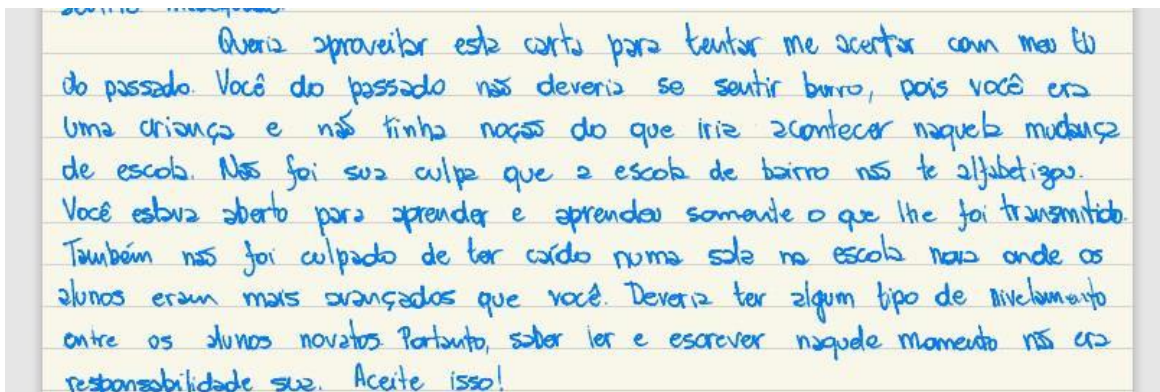 Queria aproveitar esta carta para tentar me acertar com meu Eu
do passado. Você do passado não deveria se sentir burro, pois você era
uma criança e não tinha noção do que iria acontecer naquela mudança
de escola. Não foi sua culpa que a escola de bairro não te alfabetizou.
Você estava aberto para aprender e aprendeu somente o que lhe foi transmitido.
Também não foi culpado de ter caído numa sala na escola nova onde os
alunos eram mais avançados que você. Deveria ter algum tipo de nivelamento
entre os alunos novatos. Portanto, saber ler e escrever naquele momento não era
responsabilidade sua. Aceite isso!